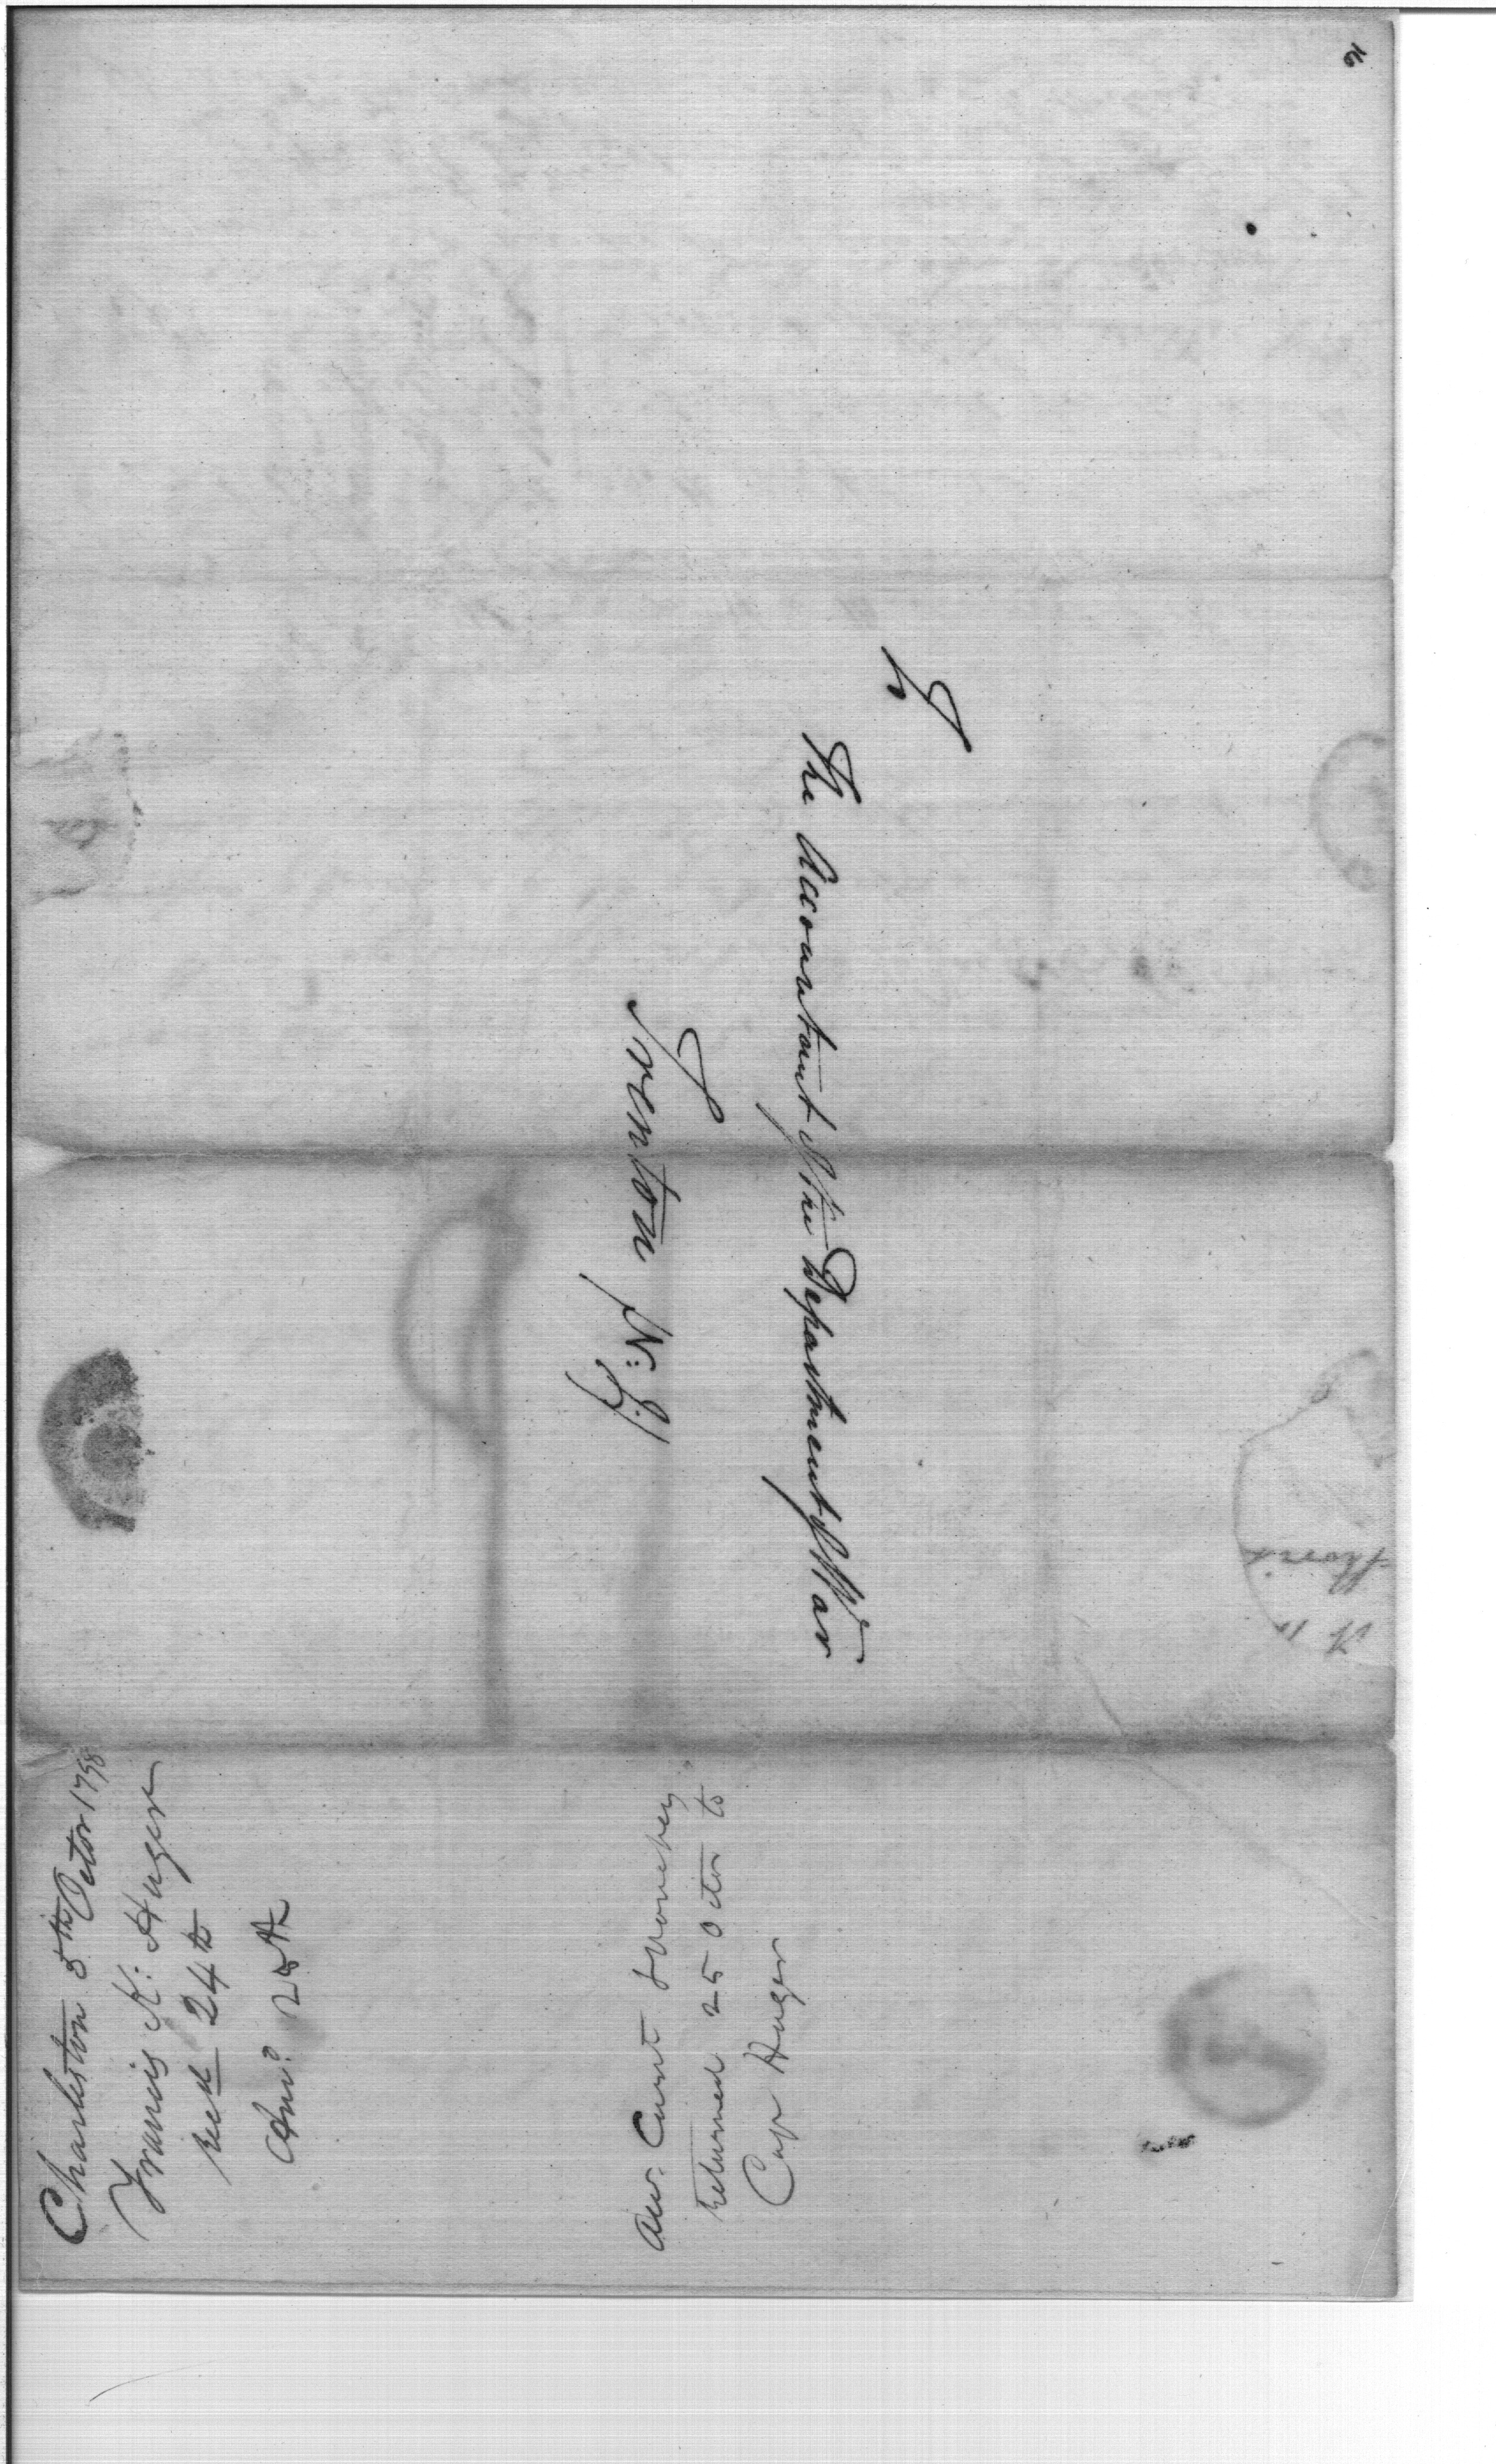 To
The Accountant of the Department of War
Trenton N: J:
Charleston 5th Octor 1798
Francis K: Huger
Recd 24th
Ansd 25th
Acc. Curnt
Returned 25 Octor to
Cap Huger
16